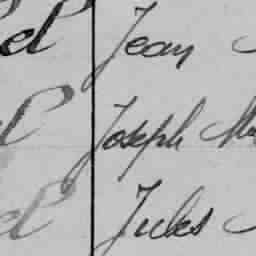 el Jean
el Joseph
el Jules